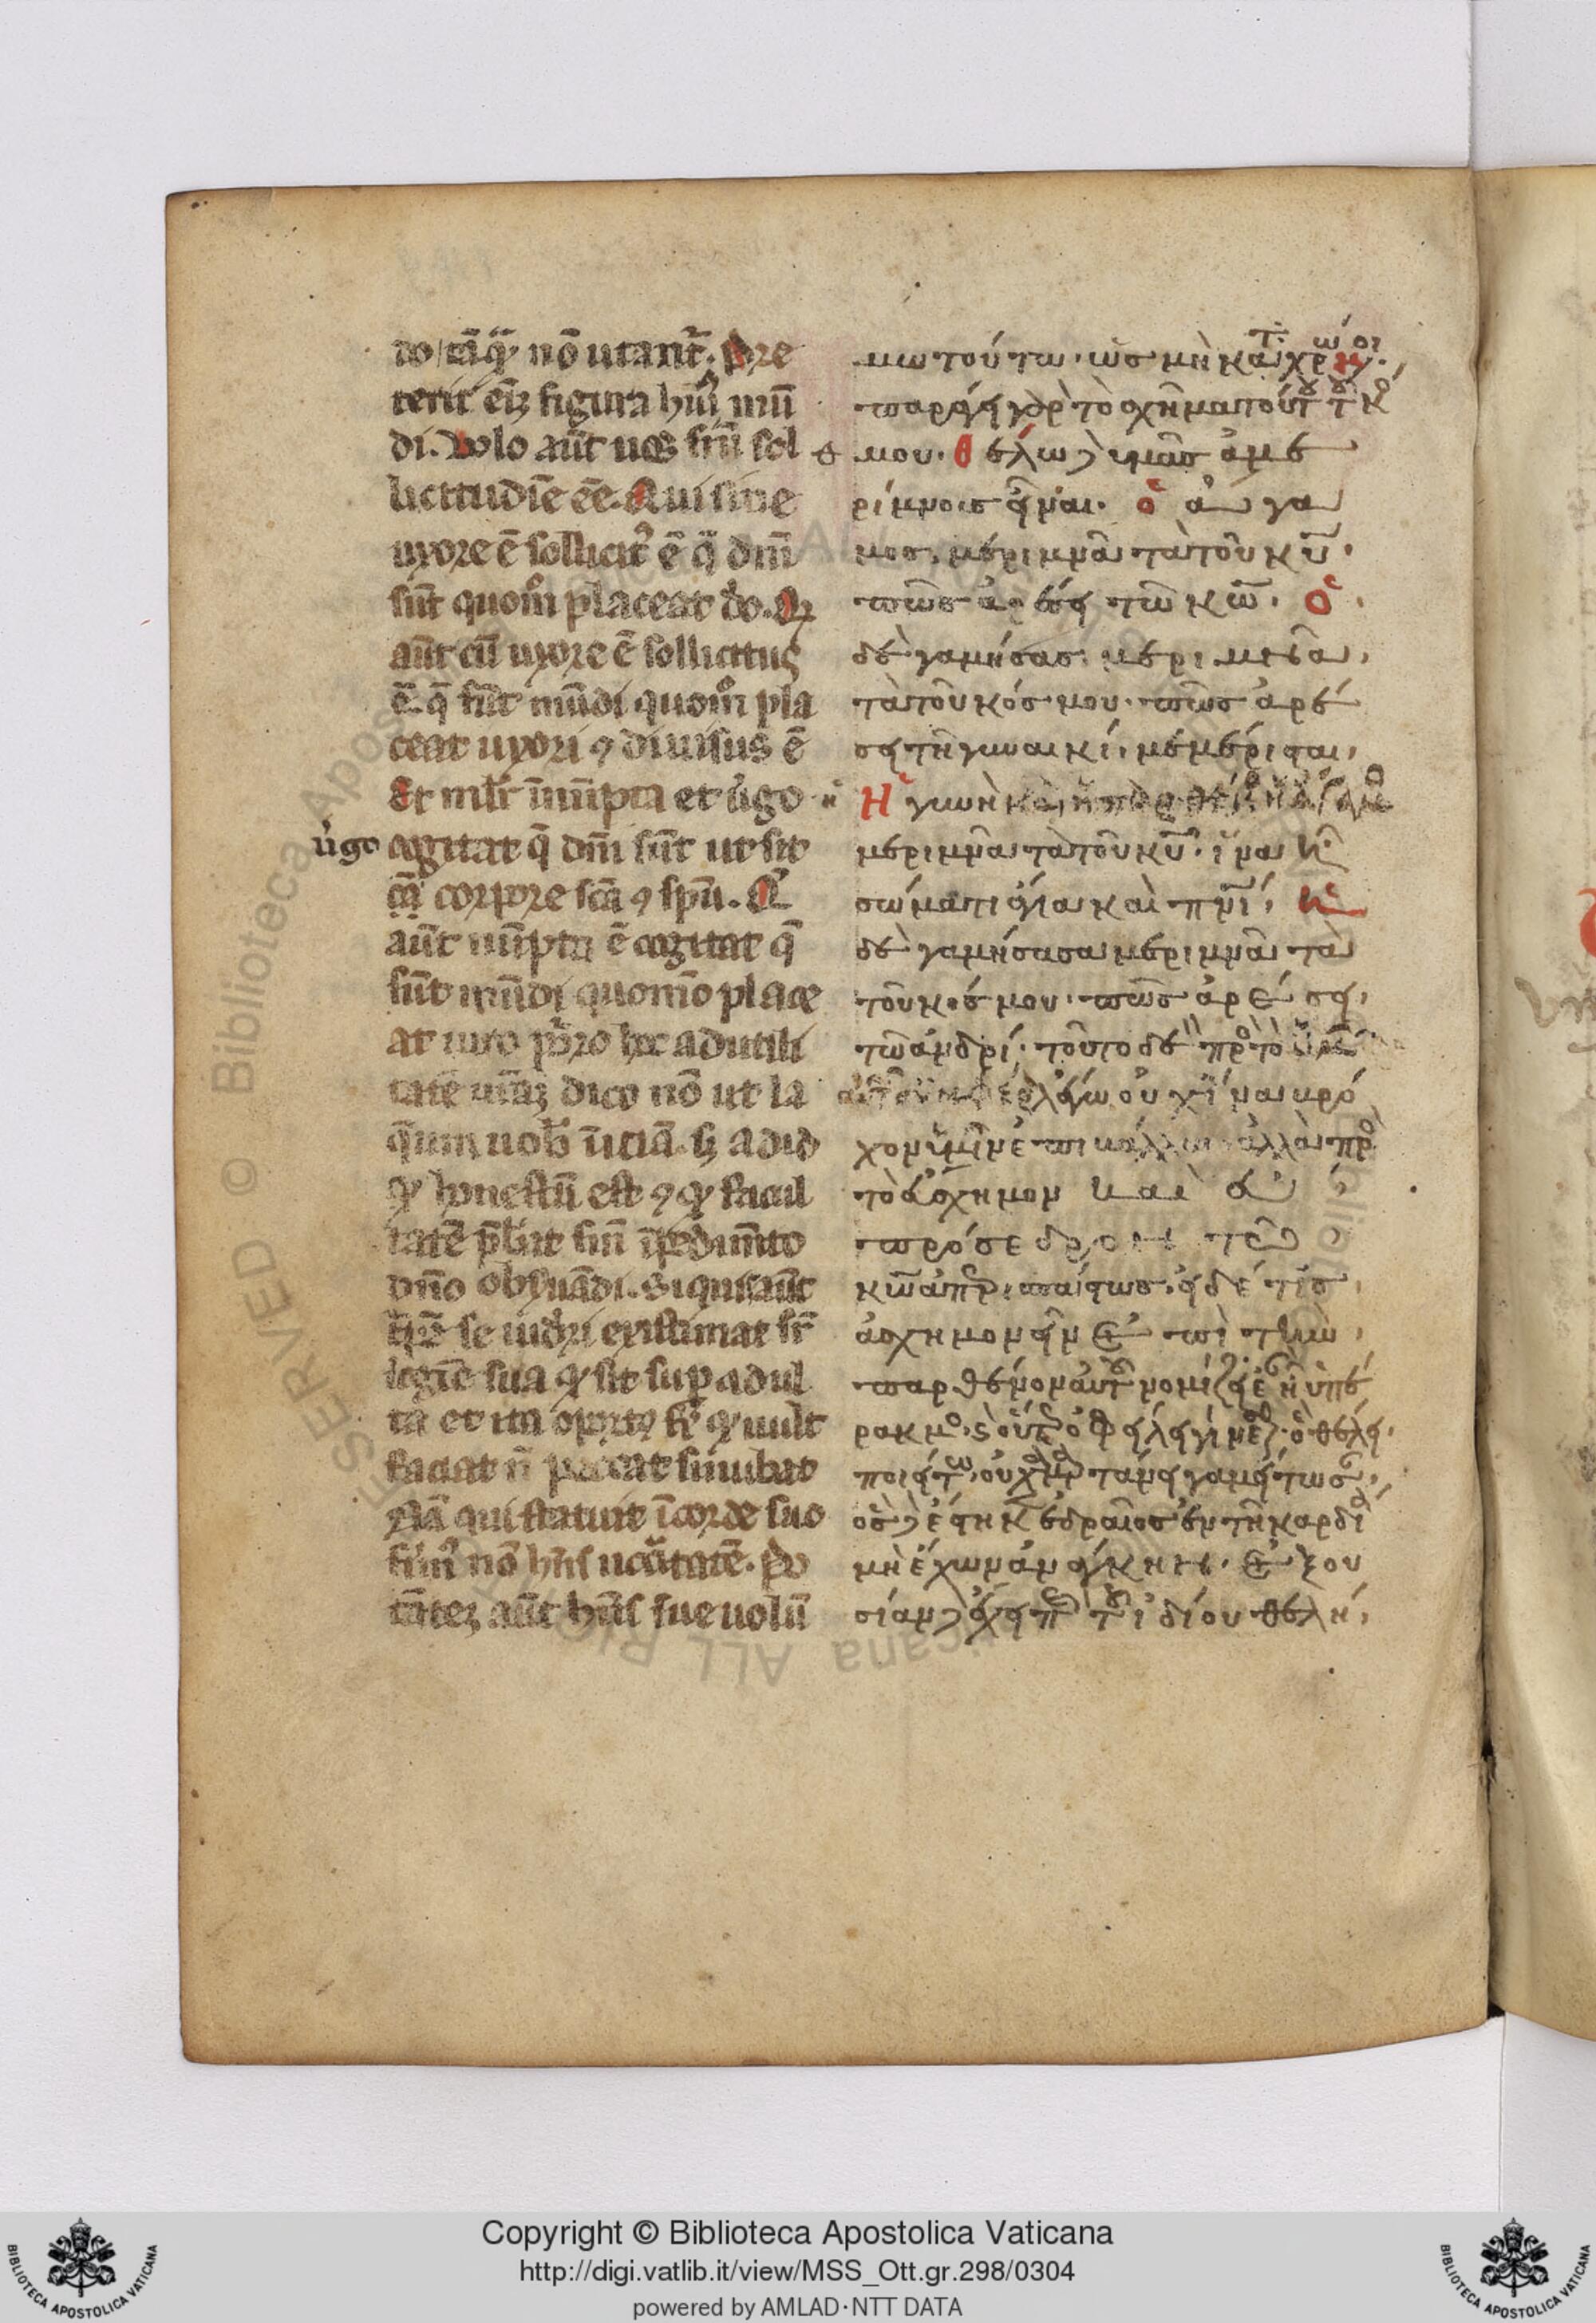 do tāq̄ nō utant᷑. Pre
terit eīꝫ figura huī mū
di. Volo aūt uos sn̄ sol
licitudīe eē. Qui sine
uxore ē sollicit᷑ ē q̄ dn̄i
sūt quom̊ placeat do. Q̇
aūt cū uxore ē sollicitus
ē. q̄ sūt mūdi quom̊ pla
ceat uxori ⁊ diuisus ē
Et mlr̄ īnūpta et ūgo
ūgo cogitat q̄ dn̄i sūt ut sit
sc̄a corpore ⁊ spū. Q̄
aūt nūpta ē cogitat q̄
sūt mūdi quomō place
at uiro porro hec ad utili
tatē ur̄aꝫ dico nō ut la
q̄um uob̄ īiciā. sꝫ ad id
qꝫ honestū est ⁊ qꝫ facul
tatē p̄beat sn̄ īpedimēto
dn̄o obsuādi. Si quis aūt
t᷑pē se uideri existimat sr̄
uigīe sua qꝫ sit sup adul
ta et ita oportꝫ fi᷑ qꝫ uult
faciat n̄ peccat si nubat
Nā qui statuit ī corde suo
firm᷑ nō hn̄s necītatē. Po
tātez aūt hn̄s sue uolū
μω τούτω. ὡς μὴ καταχρώμενοι.
παράγει γὰρ τὸ σχῆμα τούτου τοῦ κό
μου. θέλω δὲ ὑμᾶς ἀμε
ρίμνους εἶναι. ὁ ἄγα
μος μεριμνᾶ τὰ τοῦ κ̅υ̅.
πῶς ἀρέσει τῶ κ̅ω̅. ὁ
δὲ γαμήσας μεριμνᾶ
τὰ τοῦ κόσμου. πῶς ἀρέ
σει τῆ γυναικί. μεμέρισται,
Ἡ γυνὴ καὶ ἡ παρθένος ἡ ἄγαμος
μεριμνᾶ τὰ τοῦ κ̅υ̅. ἵνα ἦ
σώματι ἁγία καὶ πν̅ι̅, ἡ
δὲ γαμήσασα μεριμνᾶ τὰ
τοῦ κόσμου. πῶς ἀρέσει
τῶ ἀνδρί. τοῦτο δὲ πρὸς τὸ ὑμῶν
λέγω οὐχ ἵνα βρό
χον ὑμῖν ἐπιβάλλω ἀλλὰ πρὸς
τὸ εὔσχημον καὶ εὐ
πρόσεδρον τῶ
κ̅ω̅ ἀπερισπάστως. εἰ δέ τις
ἀσχημονεῖν ἐπὶ τὴν
παρθένον αὐτοῦ νομίζει ἐὰν ἦ ὑπέ
ρακμος. καὶ οὕτως ὀφείλει γίνεσθαι. ὃ θέλει
ποιείτω. οὐχ ἁμαρτάνει γαμείτωσαν,
ὃς δὲ ἕστηκεν ἑδραῖος ἐν τῆ καρδία
μὴ ἔχων ἀνάγκην. ἐξου
σίαν δὲ ἔχει περὶ τοῦ ἰδίου θελή,
RESERVED © Biblioteca Apostolica Vaticana ALL RIGHTS
Copyright © Biblioteca Apostolica Vaticana
http://digi.vatlib.it/view/MSS_Ott.gr.298/0304
powered by AMLAD·NTT DATA
BIBLIOTECA APOSTOLICA VATICANA
BIBLIOTECA APOSTOLICA VATICANA